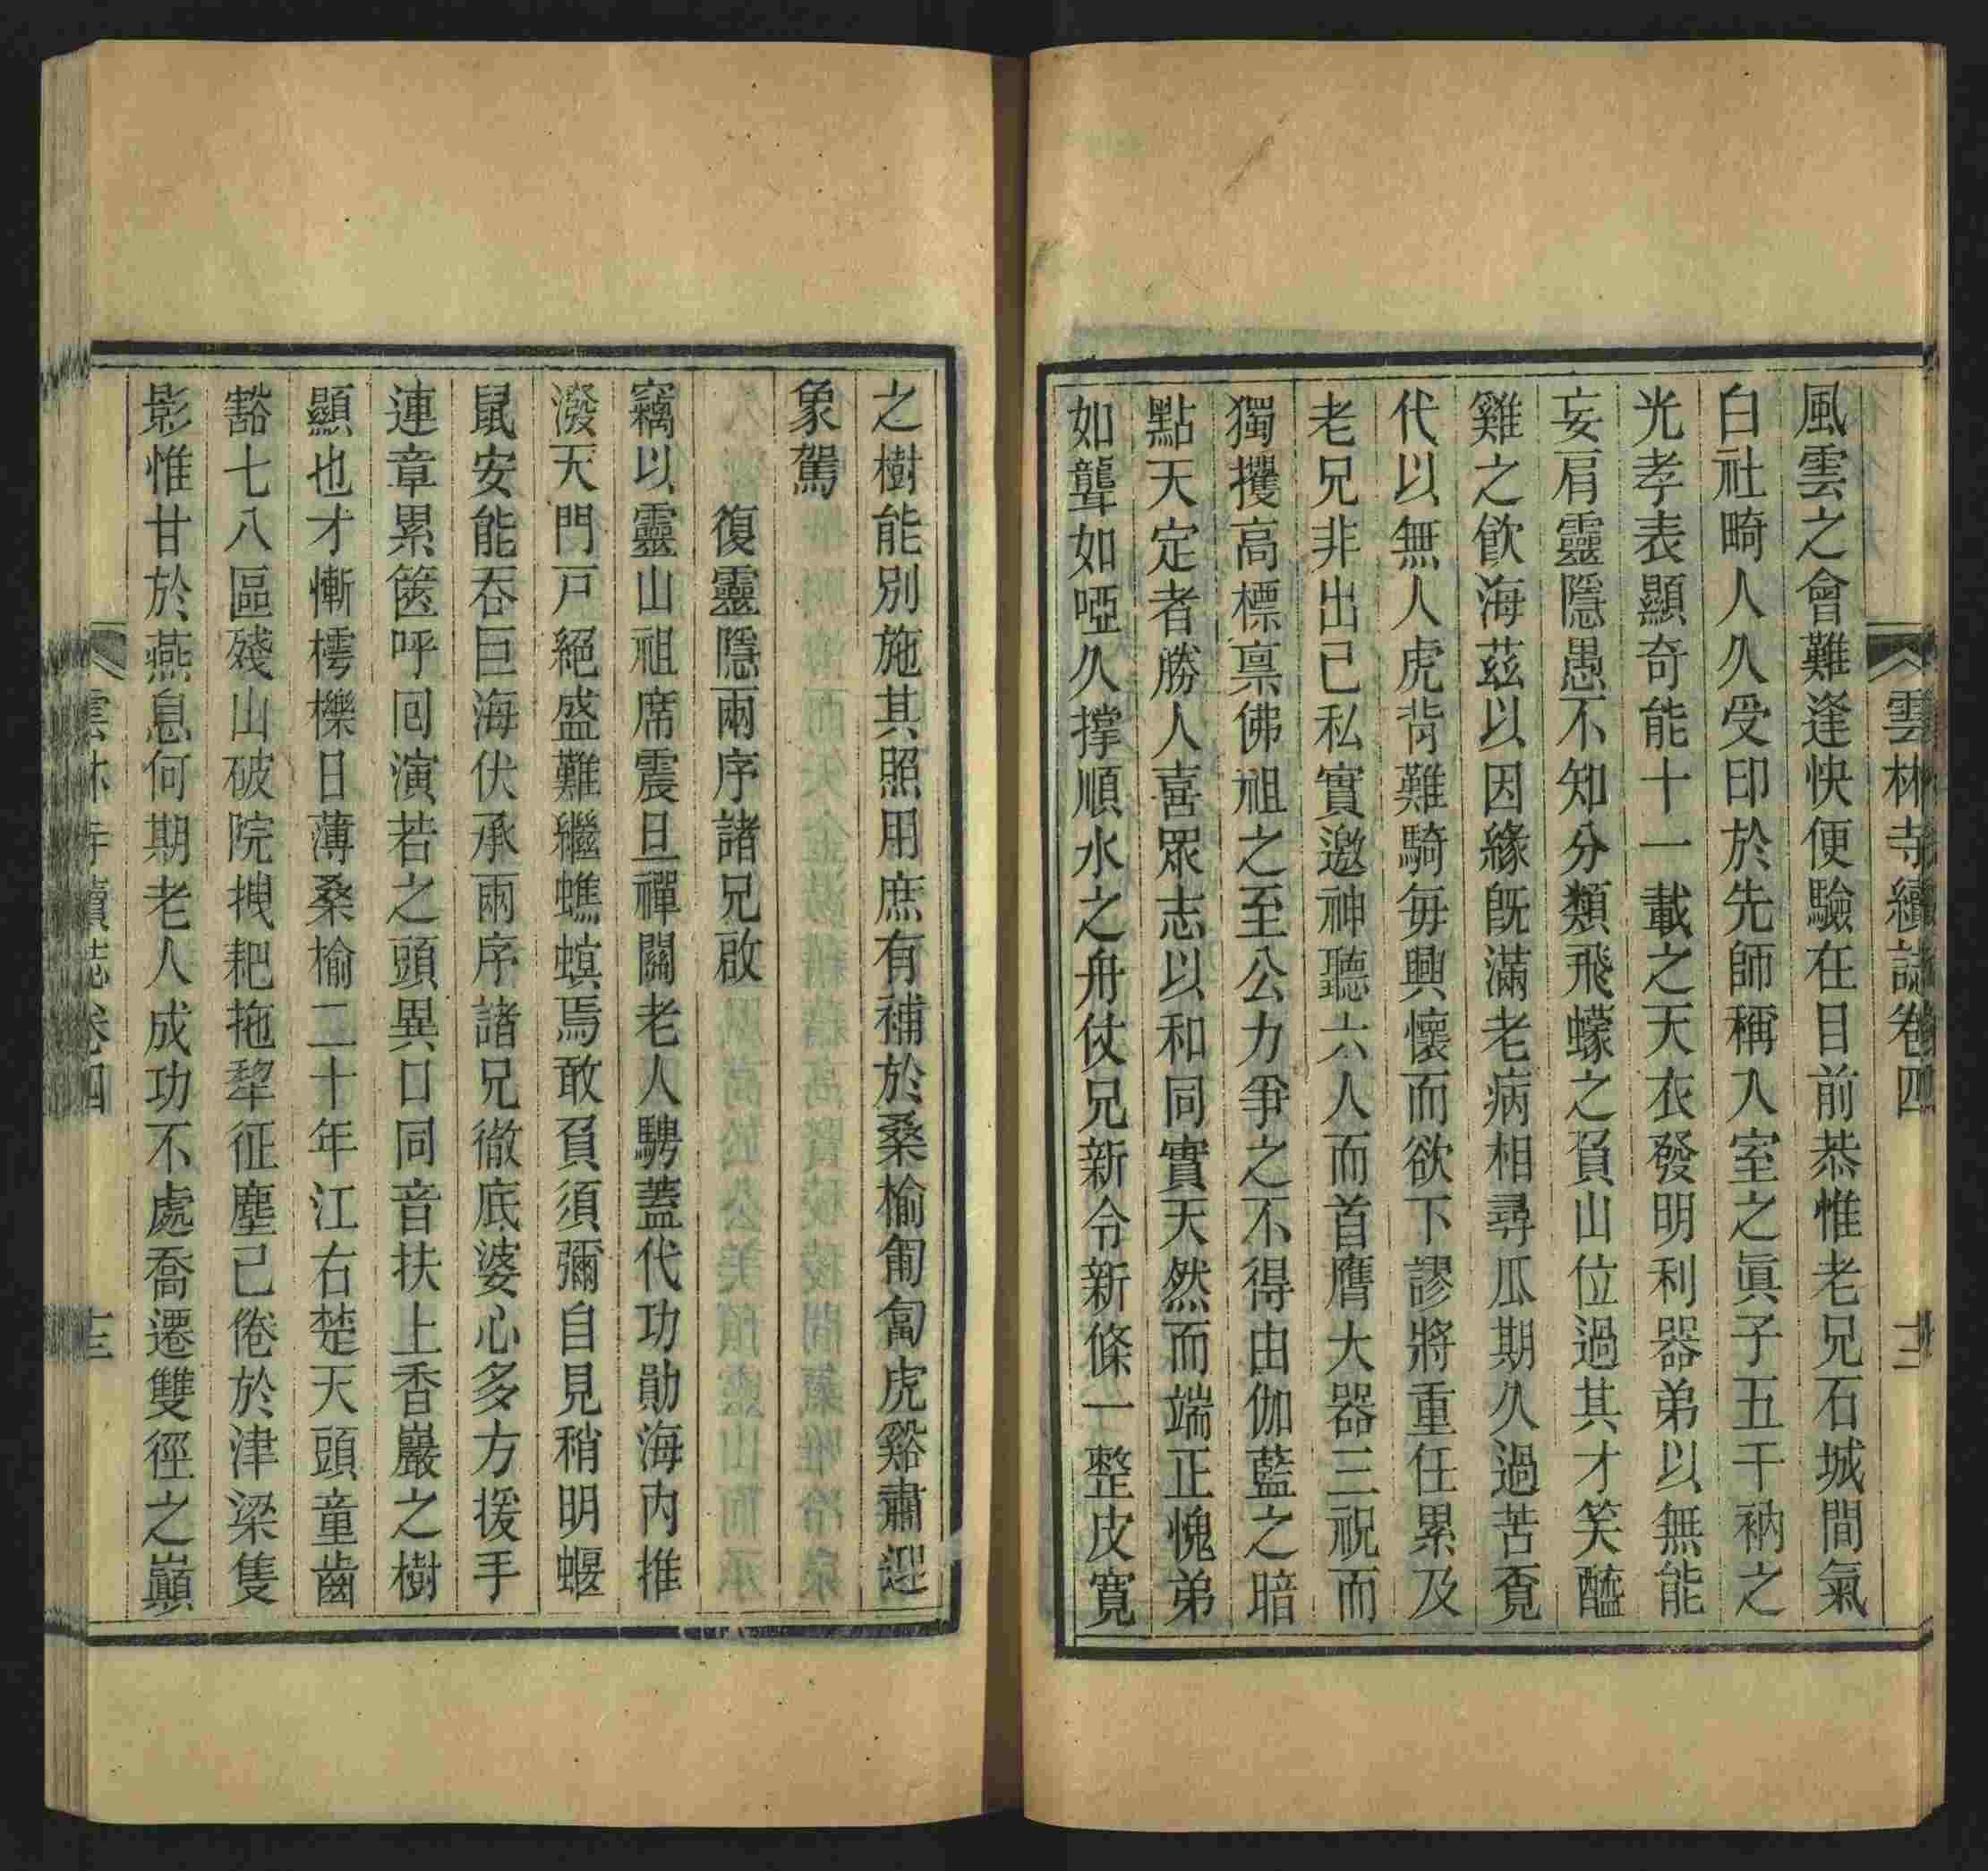 雲林寺續誌卷四
十二
風雲之會難逢快便驗在目前恭惟老兄石城間氣
白社畸人久受印於先師稱入室之眞子五千衲之
光孝表顯奇能十一載之天衣發明利器弟以無能
妄肩靈隱愚不知分類飛蠓之負山位過其才笑醯
雞之飮海茲以因緣旣滿老病相尋瓜期久過苦覔
代以無人虎背難騎每興懷而欲下謬將重任累及
老兄非出己私實邀神聽六人而首膺大器三祝而
獨攫高標禀佛祖之至公力爭之不得由伽藍之暗
點天定者勝人喜眾志以和同實天然而端正愧弟
如聾如啞久撐順水之舟仗兄新令新條一整皮寬
之樹能別施其照用庶有補於桑榆匍匐虎谿肅迎
象駕
復靈隱兩序諸兄啟
竊以靈山祖席震旦禪關老人騁蓋代功勛海內推
潑天門戸絕盛難繼蟭螟焉敢負須彌自見稍明蝘
鼠安能吞巨海伏承兩序諸兄徹底婆心多方援手
連章累箧呼囘演若之頭異口同音扶上香巖之樹
顯也才慚樗櫟日薄桑榆二十年江右楚天頭童齒
豁七八區殘山破院拽耙拖犂征塵已倦於津梁隻
影惟甘於燕息何期老人成功不處喬遷雙徑之巔
雲林寺續誌卷四
十三